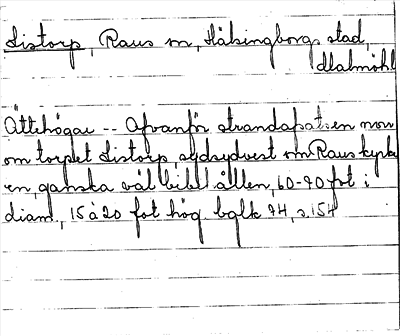 Sistorp, Raus sn, Hälsingborgs stad,
Malmöhl
Ättehögar -- Ofvanför strandafsatsen norr
om torpet Sistorp, sydsydvest om Raus kyrk
en, ganska väl bibehållen, 60-70 fot i
diam., 15 à 20 fot hög bglk 74, s. 154